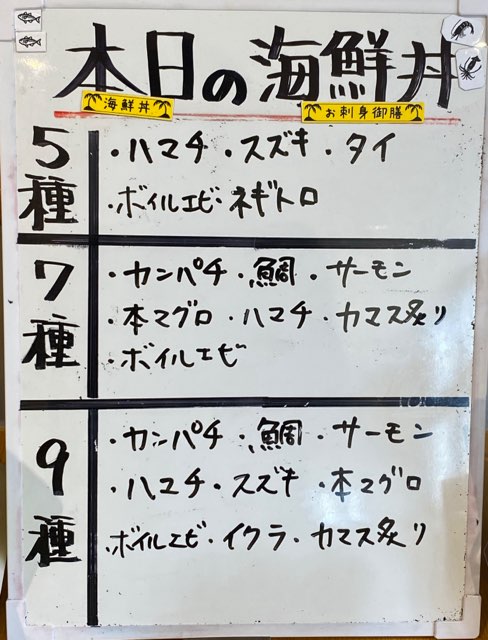 本日の海鮮丼
海鮮丼 お刺身御膳
5種
・ハマチ ・スズキ ・タイ
・ボイルエビ・ネギトロ
7種
・カンパチ ・鯛 ・サーモン
・本マグロ ・ハマチ ・カマス炙り
・ボイルエビ
9種
・カンパチ ・鯛 ・サーモン
・ハマチ ・スズキ ・本マグロ
・ボイルエビ ・イクラ ・カマス炙り